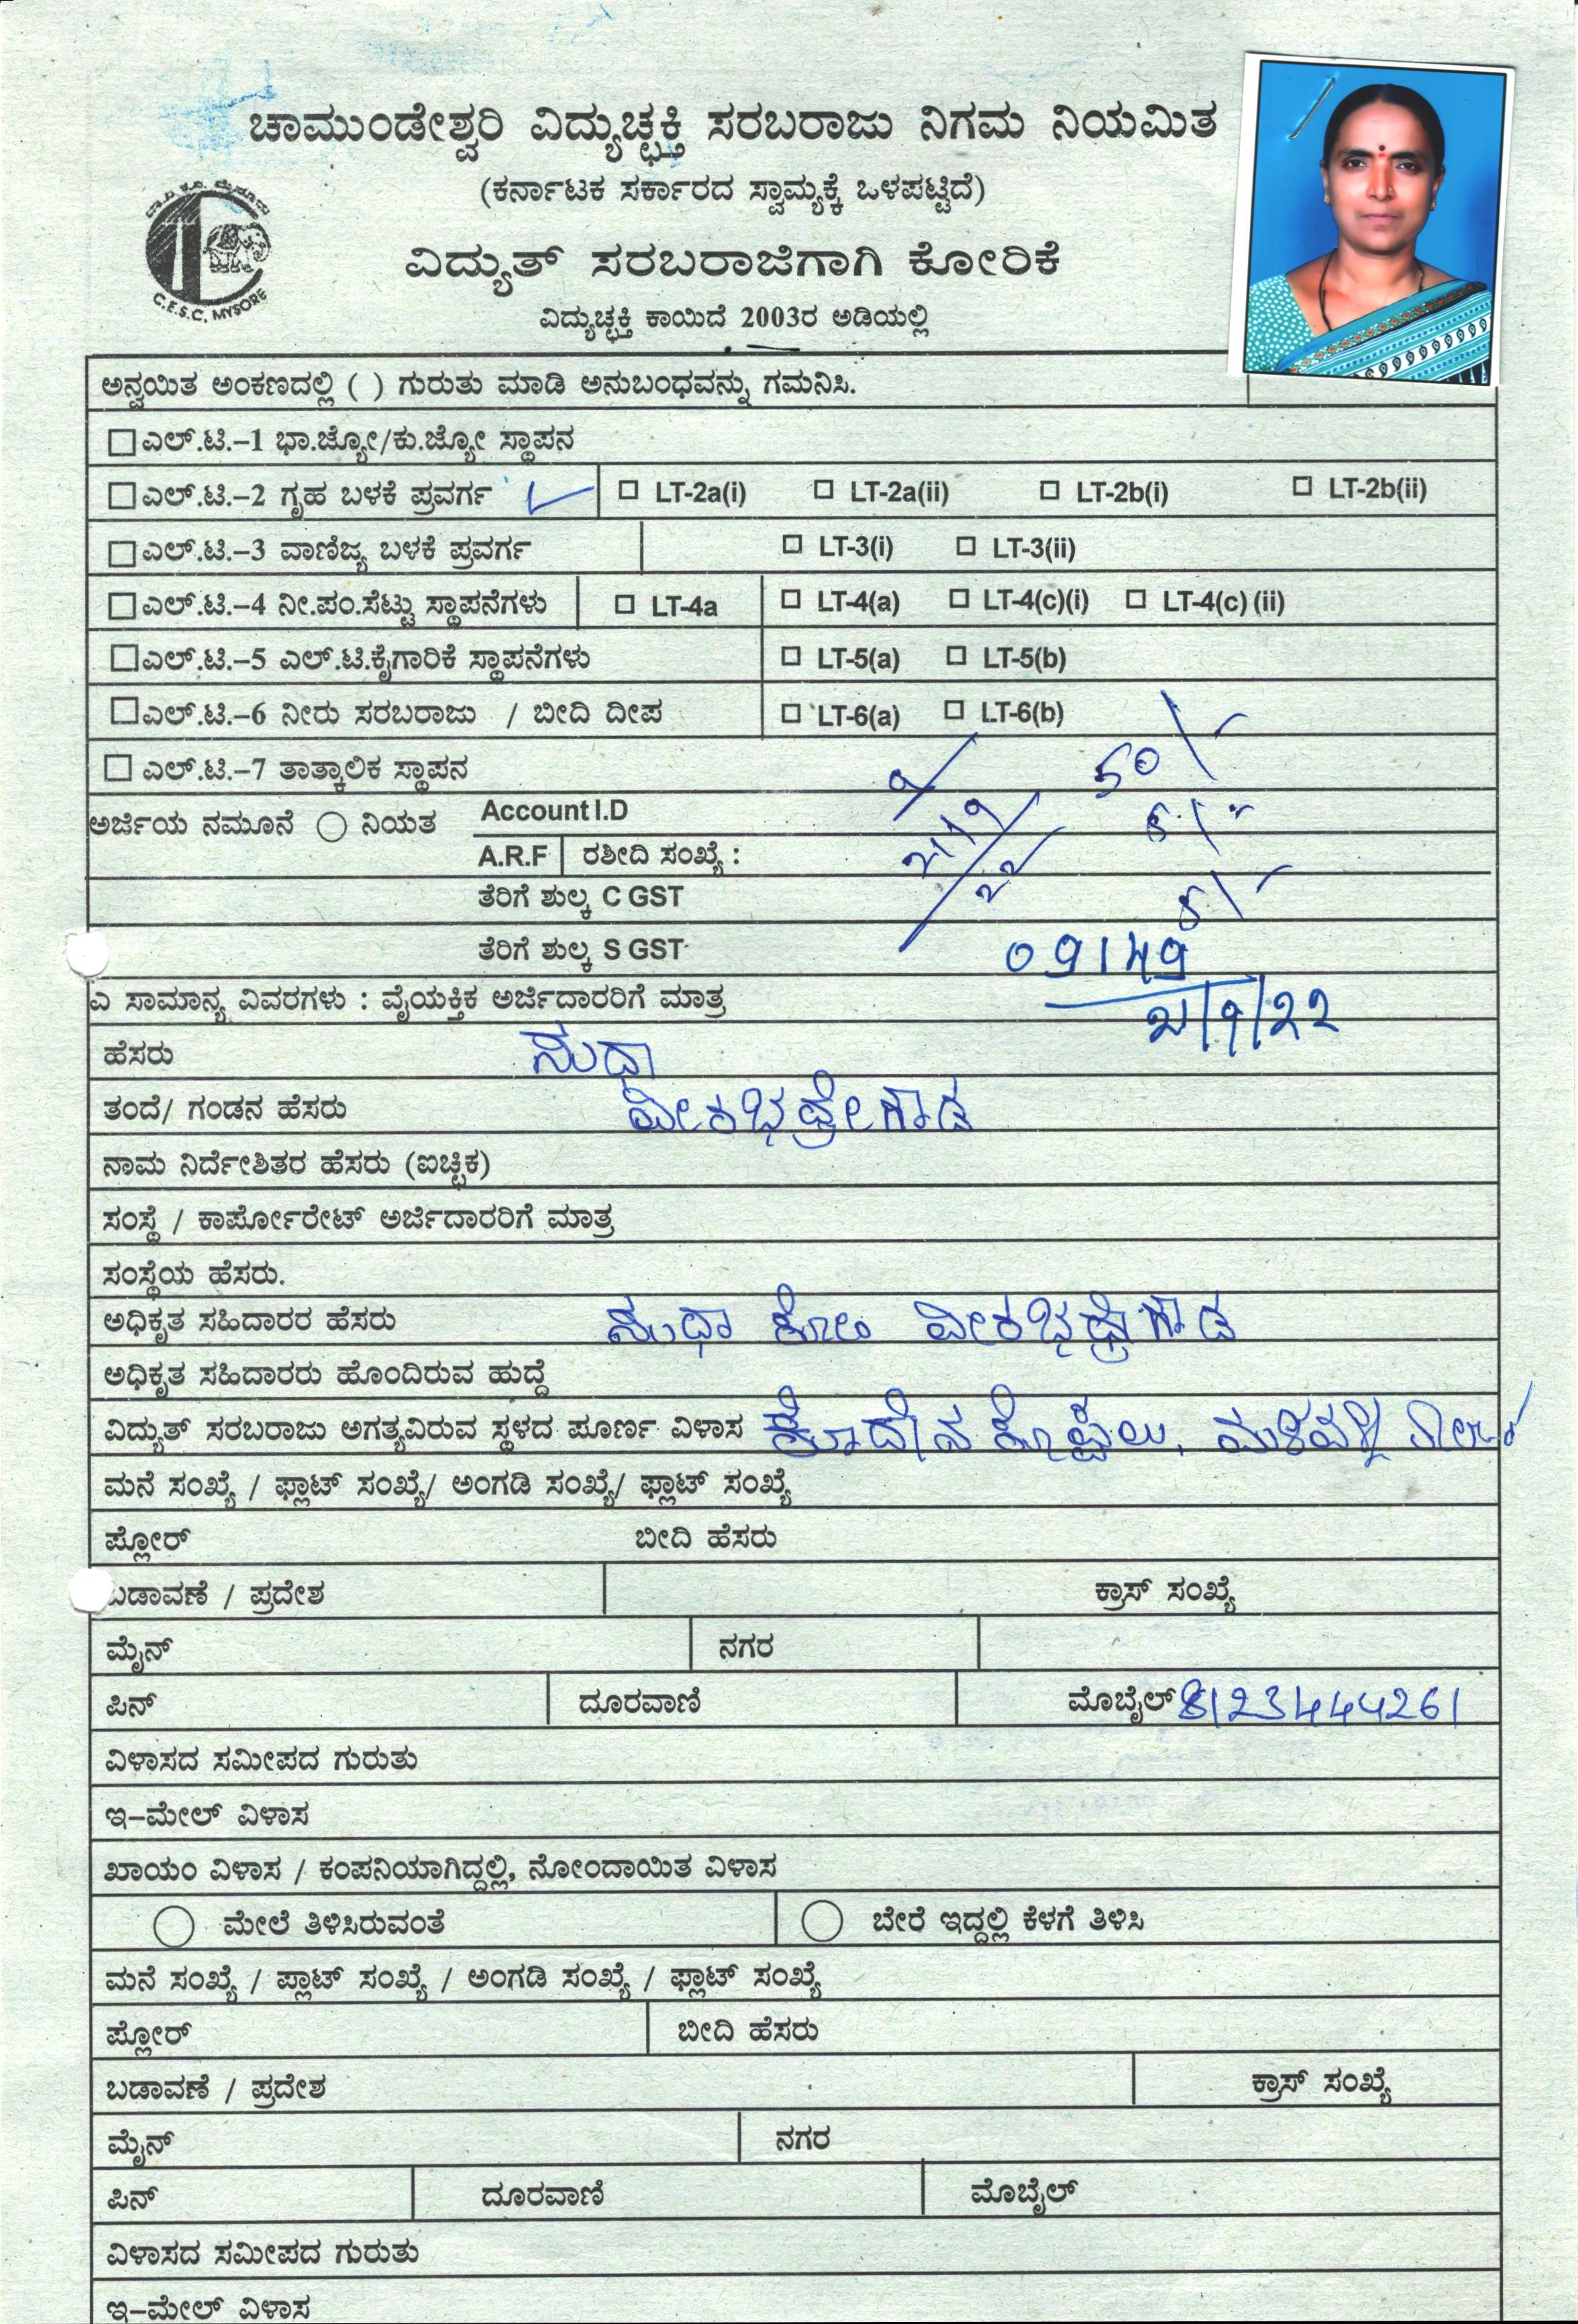 ಚಾಮುಂಡೇಶ್ವರಿ ವಿದ್ಯುಚ್ಛಕ್ತಿ ಸರಬರಾಜು ನಿಗಮ ನಿಯಮಿತ
(ಕರ್ನಾಟಕ ಸರ್ಕಾರದ ಸ್ವಾಮ್ಯಕ್ಕೆ ಒಳಪಟ್ಟಿದೆ)
C.E.S.C. MYSORE
ವಿದ್ಯುತ್ ಸರಬರಾಜಿಗಾಗಿ ಕೋರಿಕೆ
ವಿದ್ಯುಚ್ಛಕ್ತಿ ಕಾಯಿದೆ 2003ರ ಅಡಿಯಲ್ಲಿ
ಅನ್ವಯಿತ ಅಂಕಣದಲ್ಲಿ ( ) ಗುರುತು ಮಾಡಿ ಅನುಬಂಧವನ್ನು ಗಮನಿಸಿ.
ಎಲ್.ಟಿ.-1 ಭಾ.ಜ್ಯೋ/ಕು.ಜ್ಯೋ ಸ್ಥಾಪನ
ಎಲ್.ಟಿ.-2 ಗೃಹ ಬಳಕೆ ಪ್ರವರ್ಗ LT-2a(i) LT-2a(ii) LT-2b(i) LT-2b(ii)
ಎಲ್.ಟಿ.-3 ವಾಣಿಜ್ಯ ಬಳಕೆ ಪ್ರವರ್ಗ LT-3(i) LT-3(ii)
ಎಲ್.ಟಿ.-4 ನೀ.ಪಂ.ಸೆಟ್ಟು ಸ್ಥಾಪನೆಗಳು LT-4a LT-4(a) LT-4(c)(i) LT-4(c) (ii)
ಎಲ್.ಟಿ.-5 ಎಲ್.ಟಿ.ಕೈಗಾರಿಕೆ ಸ್ಥಾಪನೆಗಳು LT-5(a) LT-5(b)
ಎಲ್.ಟಿ.-6 ನೀರು ಸರಬರಾಜು / ಬೀದಿ ದೀಪ LT-6(a) LT-6(b)
ಎಲ್.ಟಿ.-7 ತಾತ್ಕಾಲಿಕ ಸ್ಥಾಪನ 50/-
ಅರ್ಜಿಯ ನಮೂನೆ ನಿಯತ Account I.D 5/-
A.R.F ರಶೀದಿ ಸಂಖ್ಯೆ :
ತೆರಿಗೆ ಶುಲ್ಕ C GST 5/-
ತೆರಿಗೆ ಶುಲ್ಕ S GST 09149
ಎ ಸಾಮಾನ್ಯ ವಿವರಗಳು : ವೈಯಕ್ತಿಕ ಅರ್ಜಿದಾರರಿಗೆ ಮಾತ್ರ 21/9/22
ಹೆಸರು ಸುಧಾ
ತಂದೆ/ ಗಂಡನ ಹೆಸರು ವೀರಭದ್ರೇಗೌಡ
ನಾಮ ನಿರ್ದೇಶಿತರ ಹೆಸರು (ಐಚ್ಛಿಕ)
ಸಂಸ್ಥೆ / ಕಾರ್ಪೋರೇಟ್ ಅರ್ಜಿದಾರರಿಗೆ ಮಾತ್ರ
ಸಂಸ್ಥೆಯ ಹೆಸರು.
ಅಧಿಕೃತ ಸಹಿದಾರರ ಹೆಸರು ಸುಧಾ ಕೋಂ ವೀರಭದ್ರೇಗೌಡ
ಅಧಿಕೃತ ಸಹಿದಾರರು ಹೊಂದಿರುವ ಹುದ್ದೆ
ವಿದ್ಯುತ್ ಸರಬರಾಜು ಅಗತ್ಯವಿರುವ ಸ್ಥಳದ ಪೂರ್ಣ ವಿಳಾಸ ಕೊಪ್ಪಲು, ಮಳವಳ್ಳಿ
ಮನೆ ಸಂಖ್ಯೆ / ಫ್ಲಾಟ್ ಸಂಖ್ಯೆ/ ಅಂಗಡಿ ಸಂಖ್ಯೆ/ ಫ್ಲಾಟ್ ಸಂಖ್ಯೆ
ಪ್ಲೋರ್ ಬೀದಿ ಹೆಸರು
ಬಡಾವಣೆ / ಪ್ರದೇಶ ಕ್ರಾಸ್ ಸಂಖ್ಯೆ
ಮೈನ್ ನಗರ
ಪಿನ್ ದೂರವಾಣಿ ಮೊಬೈಲ್ 8123444261
ವಿಳಾಸದ ಸಮೀಪದ ಗುರುತು
ಇ-ಮೇಲ್ ವಿಳಾಸ
ಖಾಯಂ ವಿಳಾಸ / ಕಂಪನಿಯಾಗಿದ್ದಲ್ಲಿ, ನೋಂದಾಯಿತ ವಿಳಾಸ
ಮೇಲೆ ತಿಳಿಸಿರುವಂತೆ ಬೇರೆ ಇದ್ದಲ್ಲಿ ಕೆಳಗೆ ತಿಳಿಸಿ
ಮನೆ ಸಂಖ್ಯೆ / ಪ್ಲಾಟ್ ಸಂಖ್ಯೆ / ಅಂಗಡಿ ಸಂಖ್ಯೆ / ಫ್ಲಾಟ್ ಸಂಖ್ಯೆ
ಪ್ಲೋರ್ ಬೀದಿ ಹೆಸರು
ಬಡಾವಣೆ / ಪ್ರದೇಶ ಕ್ರಾಸ್ ಸಂಖ್ಯೆ
ಮೈನ್ ನಗರ
ಪಿನ್ ದೂರವಾಣಿ ಮೊಬೈಲ್
ವಿಳಾಸದ ಸಮೀಪದ ಗುರುತು
ಇ-ಮೇಲ್ ವಿಳಾಸ